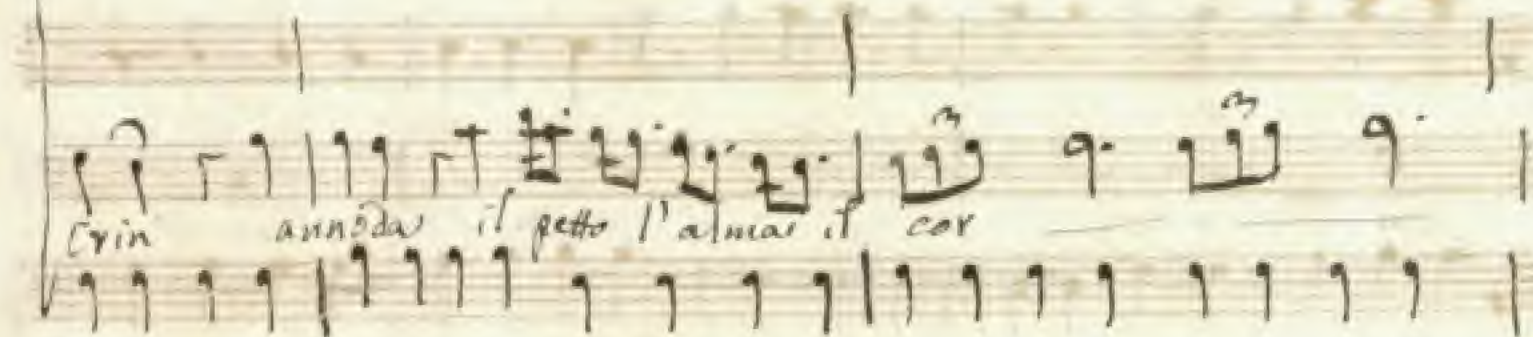 Crin annoda il petto l'alma il cor